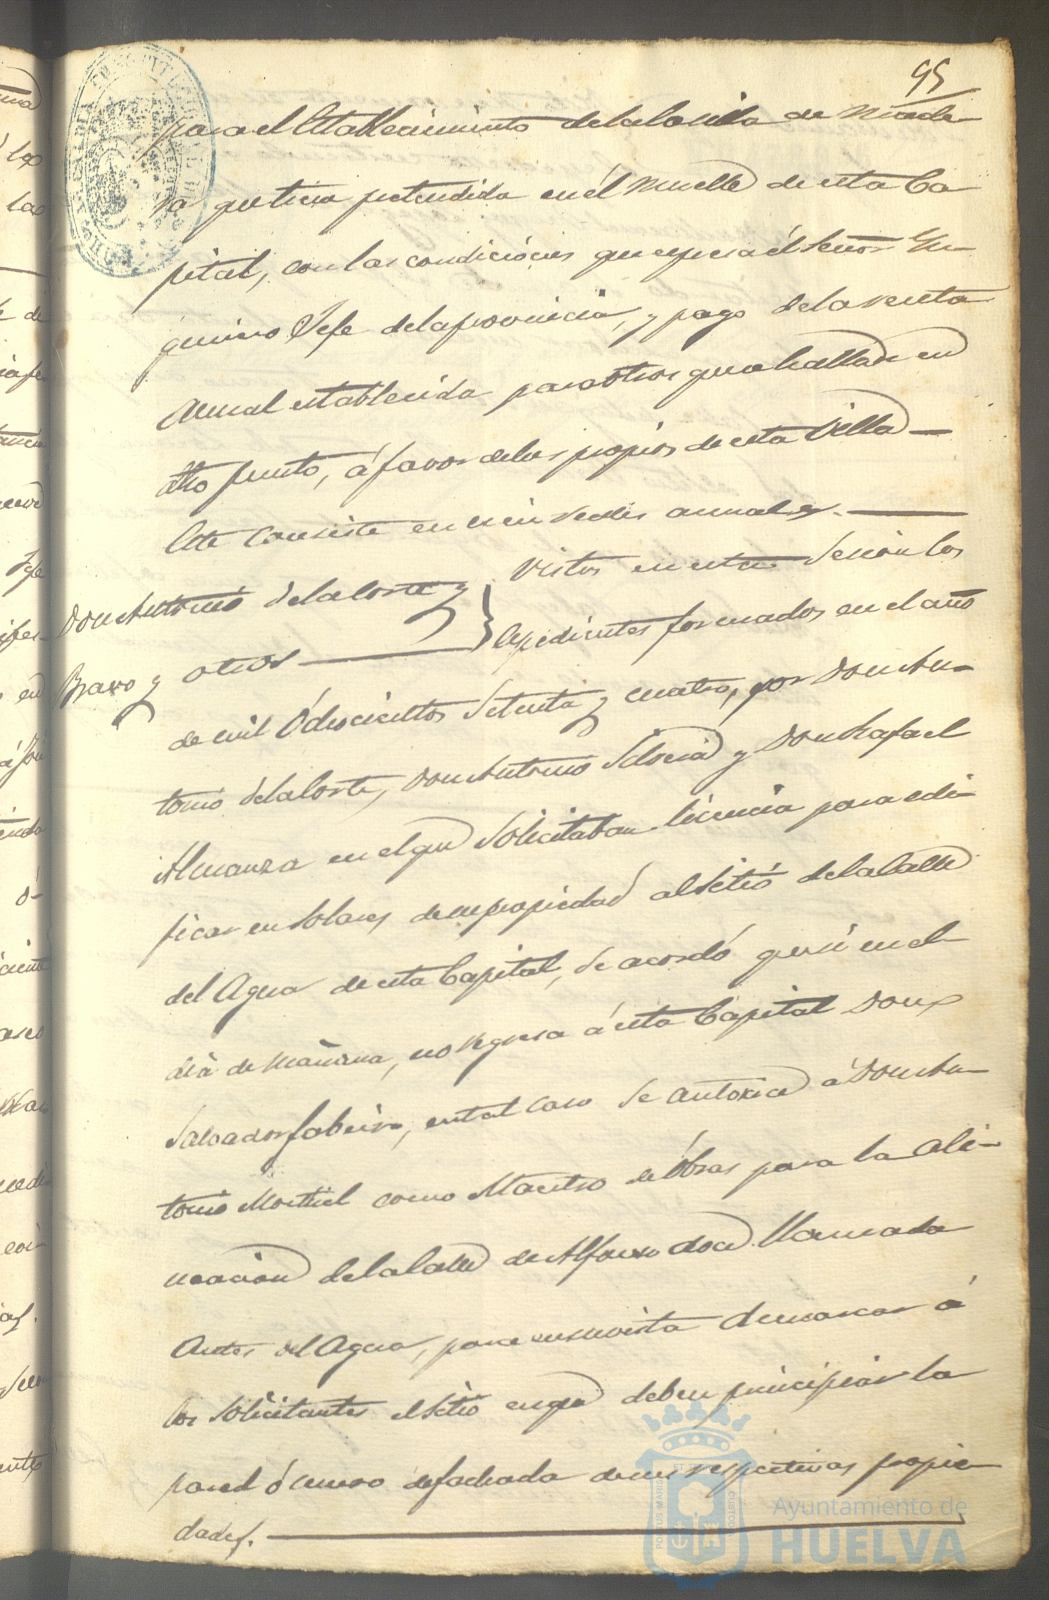 95
para el Establecimiento de la casilla de made-
ra que tiene pretendida en él muelle de esta Ca
pital, con las condiciónes que expresa él Señor Yn-
geniero Gefe de la provincia, y pago de la renta
Anual establecida para otras que se hallan en
dho punto, á favor de los propios de esta Villa
Este Consiste en cien reales anuales.
Don Antonio de la Corte y
Bravo y otros
Vistos en esta Sesion los
Expedientes formados en el año
de mil Ochocientos Setenta y cuatro, por Don An-
tonio de la Corte, Don Antonio y Don Rafael
Almanza en el que Solicitaban licencia para edi-
ficar en Solares de su propiedad al Sitió de la Calle
del Agua de esta Capital, Se acordó que si en el
dia de mañana, no regresa á esta Capital Don
Salvador, en tal caso Se autorice á Don An-
tonio Montiel como Maestro de Obras para la Ali-
neacion de la Calle de Alfonso doce llamada
Antes del Agua, para en su vista demarcar á
los Solicitantes el Sitió en que deben principiar la
pared ó muro de fachada de sus respectivas propie-
dades.
Ayuntamiento de
HUELVA